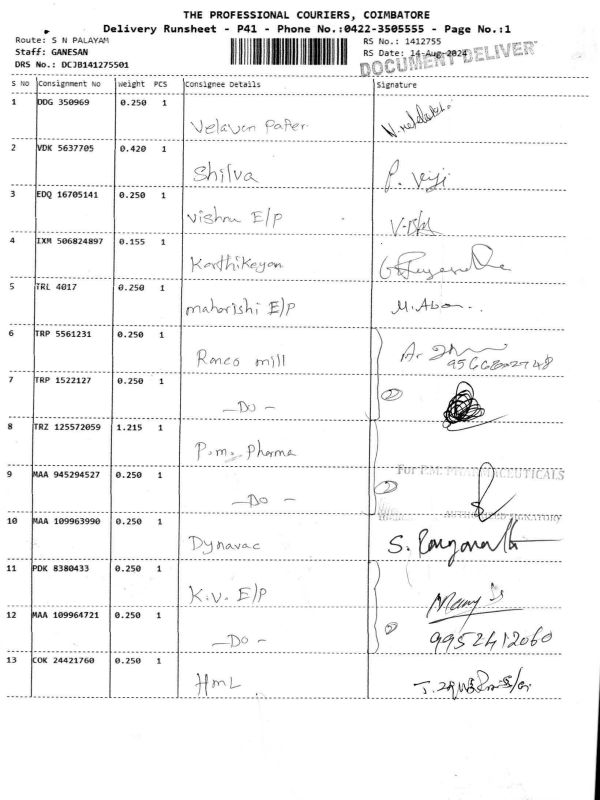 THE PROFESSIONAL COURIERS, COIMBATORE
Delivery Runsheet - P41 - Phone No.:0422-3505555 - Page No.:1
Route: S N PALAYAM
RS No.: 1412755
Staff: GANESAN
RS Date: 14-Aug-2024
DRS No.: DCJB141275501
DOCUMENT DELIVER
S NO Consignment No Weight PCS Consignee Details Signature
1 DDG 350969 0.250 1
Velavan Paper
2 VDK 5637705 0.420 1
Shilva P. Viji
3 EDQ 16705141 0.250 1
Vishnu E/P
4 IXM 506824897 0.155 1
Karthikeyan
5 TRL 4017 0.250 1
maharishi E/P M. Aban..
6 TRP 5561231 0.250 1
Ranco mill
7 TRP 1522127 0.250 1
- Do - 2
8 TRZ 125572059 1.215 1
P.m. Pharma
For P.M. PHARMACEUTICALS
9 MAA 945294527 0.250 1
- Do - 2
AUTHORISED SIGNATORY
10 MAA 109963990 0.250 1
Dynavac
11 PDK 8380433 0.250 1
K.V. E/P
12 MAA 109964721 0.250 1
- Do - 2 9952412060
13 COK 24421760 0.250 1
HmL